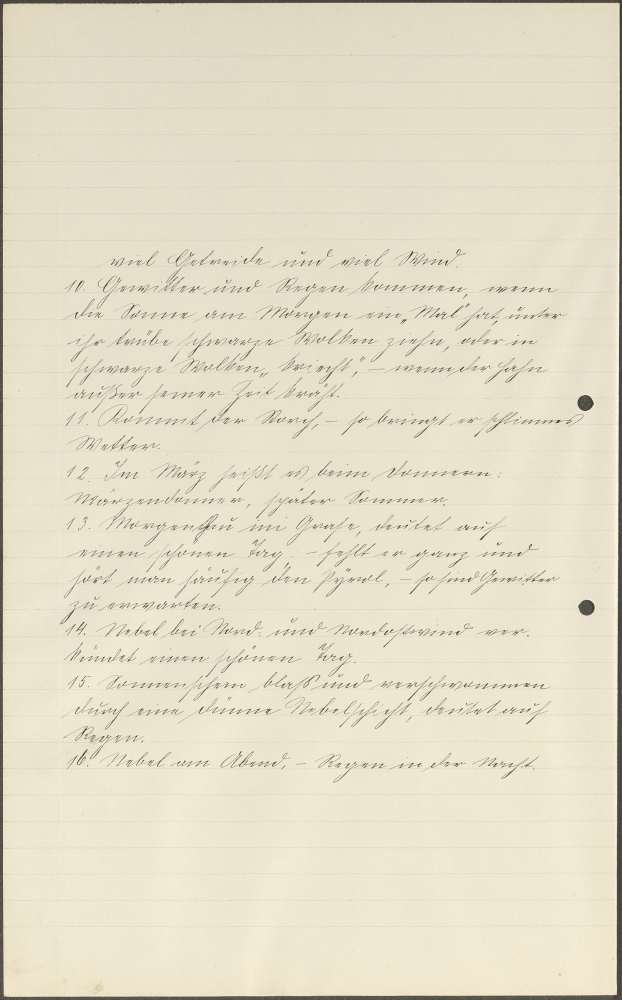 viel Getreide und viel Wind.
10. Gewitter und Regen kommen, wenn
die Sonne am Morgen ein „Mal“ hat, unter
ihr trübe schwarze Wolken ziehn, oder in
schwarze Wolken „kriecht“, – wenn der Hahn
außer seiner Zeit kräht.
11. Kommt der Storch, – so bringt er schlimmes
Wetter.
12. Im März heißt es beim Donnern:
Märzendonner, später Sommer.
13. Morgentau im Grase, deutet auf
einen schönen Tag. – fehlt er ganz und
hört man häufig den Pyrol, – so sind Gewitter
zu erwarten.
14. Nebel bei Nord- und Nordostwind ver-
kündet einen schönen Tag.
15. Sonnenschein blaß und verschwommen
durch eine dünne Nebelschicht, deutet auf
Regen.
16. Nebel am Abend, – Regen in der Nacht.